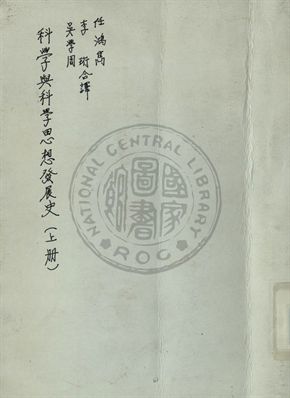 任鴻雋
李珩合譯
吳學周
科學與科學思想發展史(上册)
NATIONAL CENTRAL LIBRARY
ROC
國家圖書館